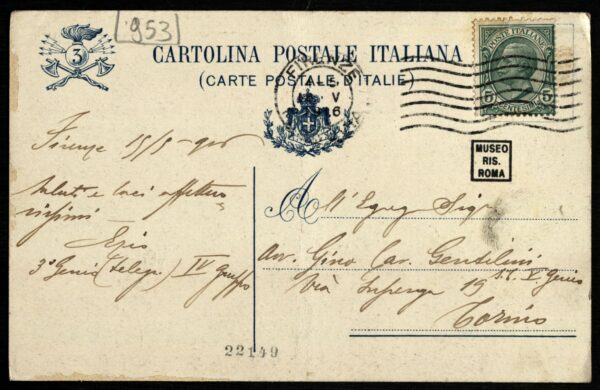 953
3
CARTOLINA POSTALE ITALIANA
(CARTE POSTALE D'ITALIE)
FIRENZE
V
6
POSTE ITALIANE
5 CENTESIMI 5
MUSEO
RIS.
ROMA
Firenze 15/5-906
Saluti e baci affettuo
sissimi
Ezio
3° Genio (Telegr.) IV Gruppo
All'Egreg Sigr
Avv. Gino Cav. Gentilini
Via 19
Torino
22149